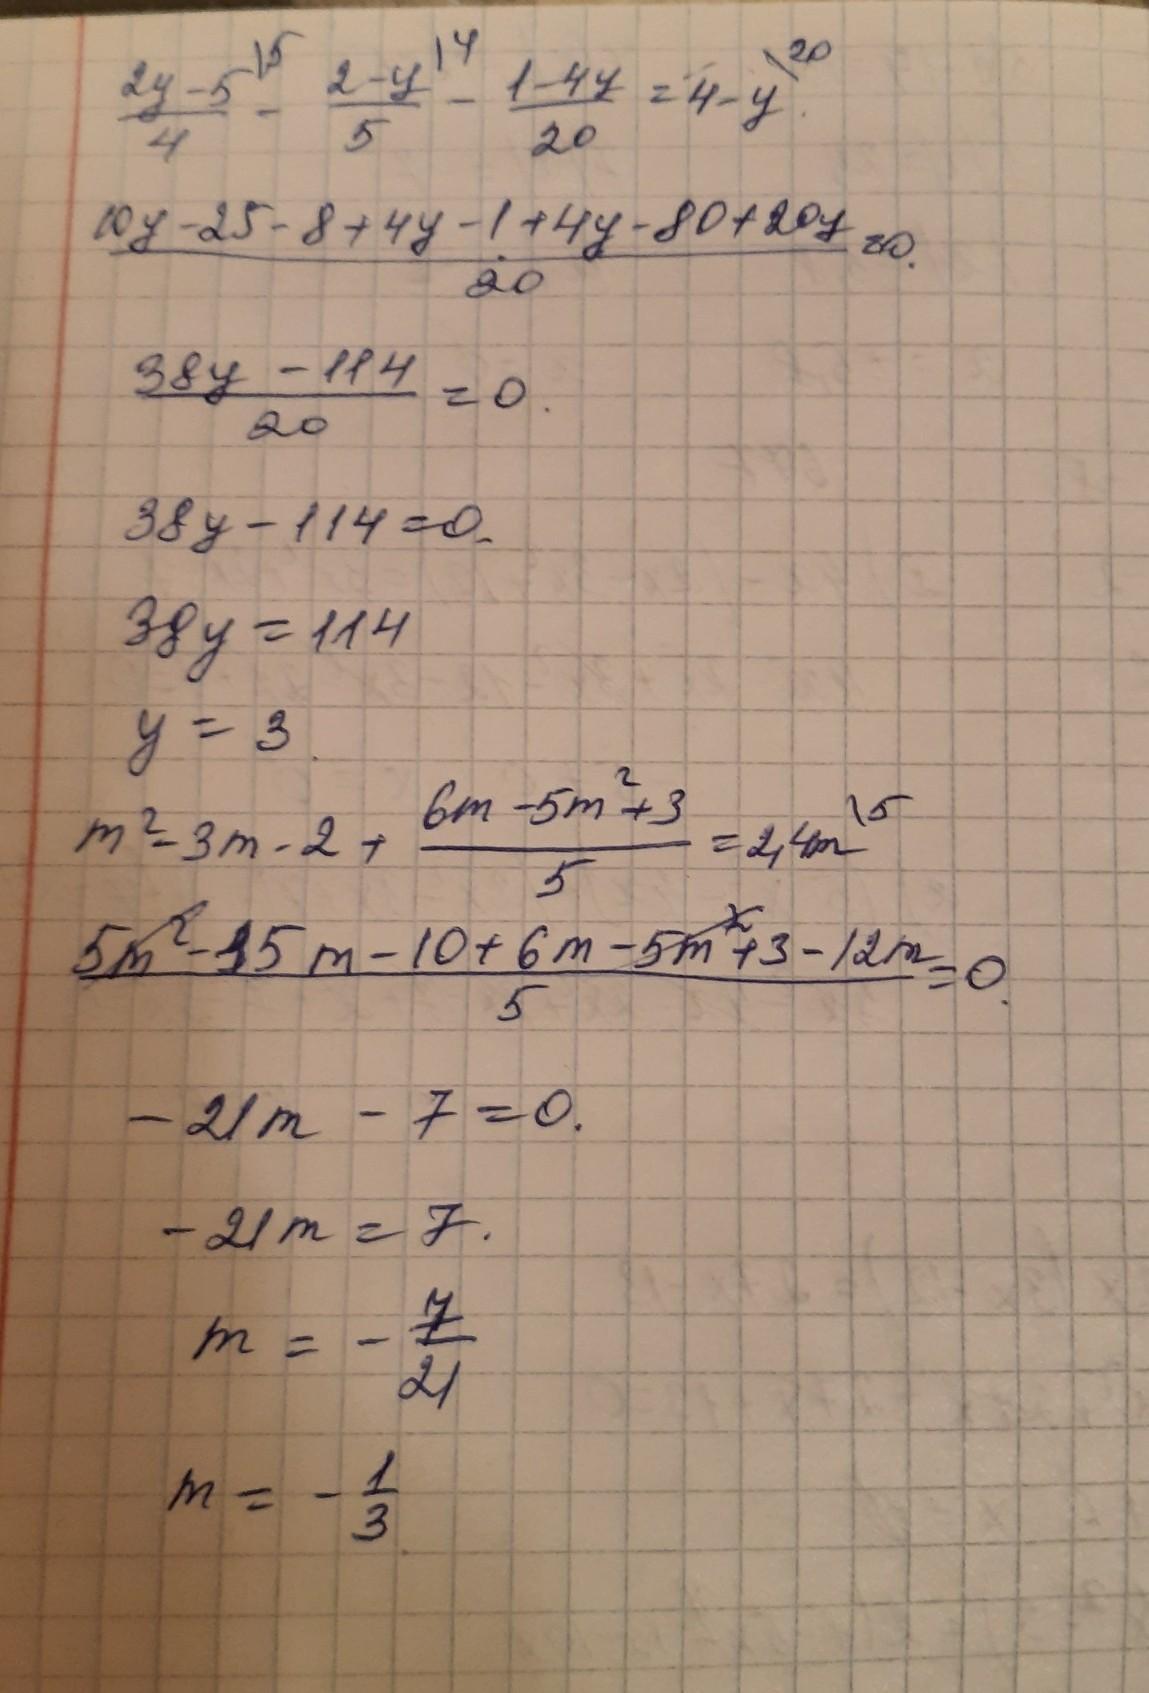 (2y-5)/4 \5 - (2-y)/5 \4 - (1-4y)/20 = 4-y \20.
(10y-25-8+4y-1+4y-80+20y)/20 =0.
(38y -114)/20 = 0.
38y-114=0.
38y = 114
y = 3
m²-3m-2 + (6m-5m²+3)/5 = 2,4m \5
(5m²-15m-10+6m-5m²+3-12m)/5 =0.
-21m -7=0.
-21m = 7.
m = - 7/21
m = - 1/3